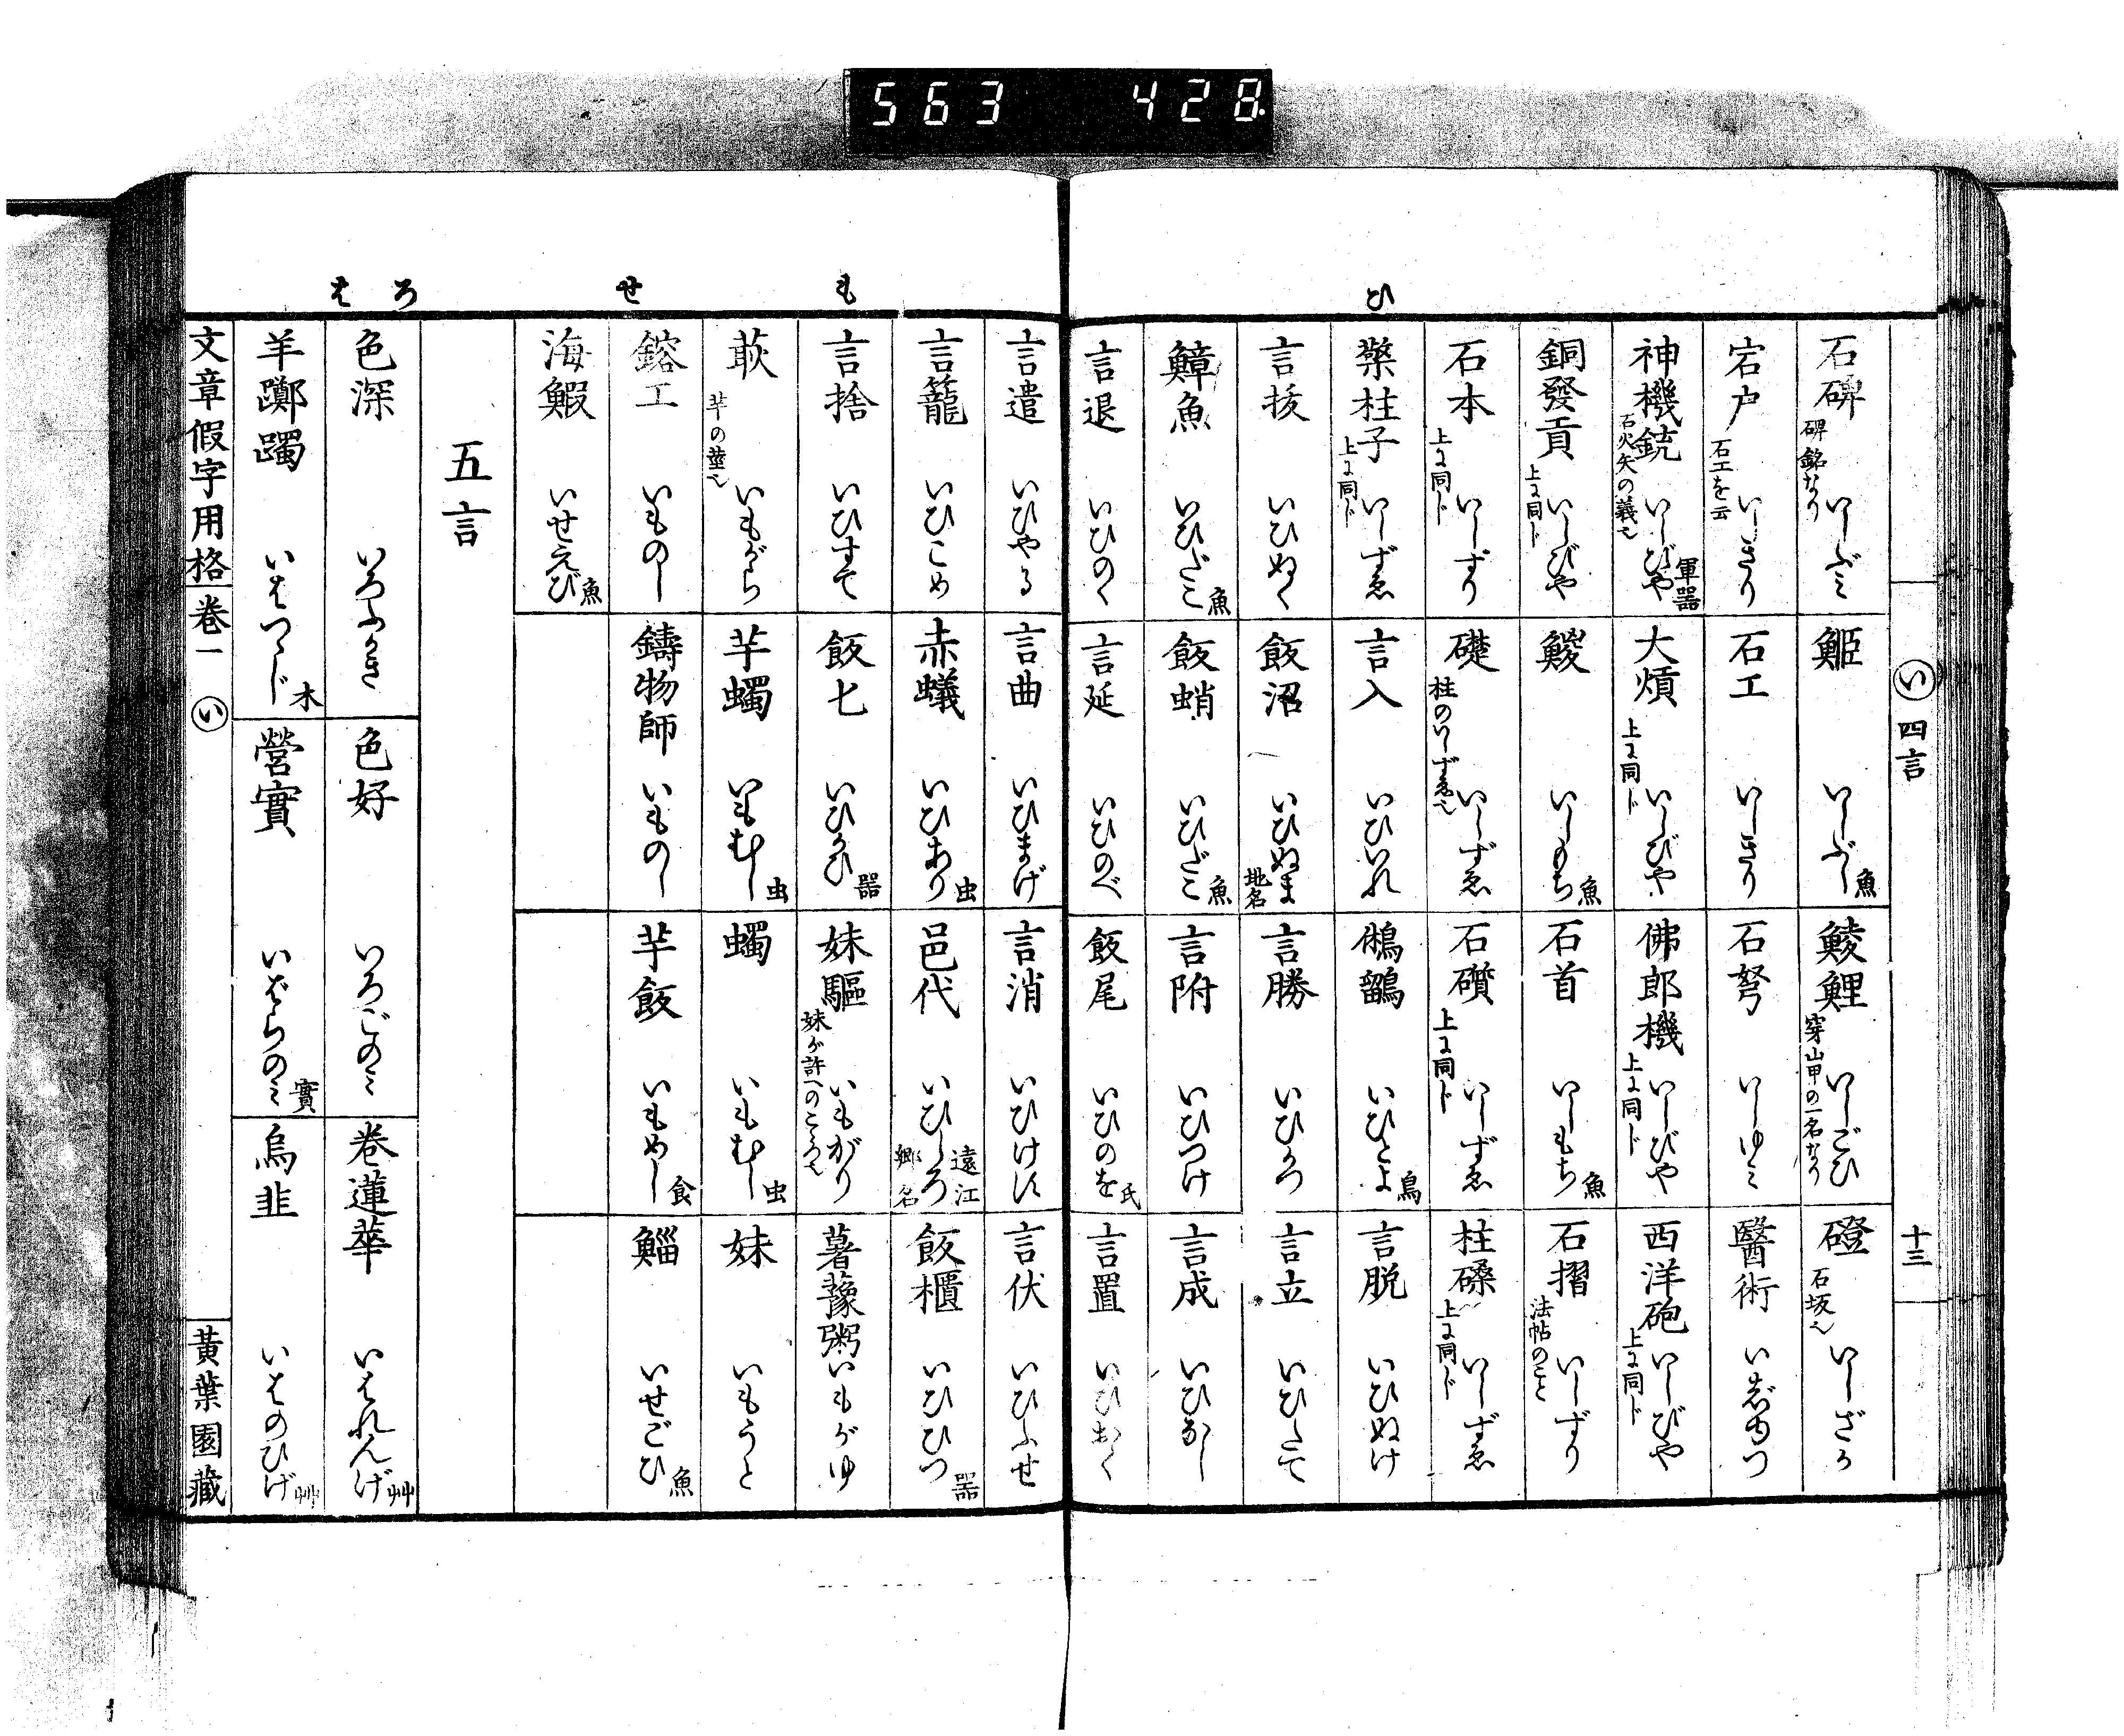 563 428
ひ
い 四言 十三
石碑 碑銘なり いしぶミ
鮔 いしぶし 魚
鯪鯉 穿山甲の一名なり いしごひ
磴 石坂也 いしざか
宕户 石工を云 いしきり
石工 いしきり
石弩 いしゆミ
醫術 いじゆつ
神機銃 石火矢の義也 いしびや 軍器
大熕 上に同ド いしびや
佛郎機 上に同ド いしびや
西洋砲 上に同ド いしびや
銅發貢 上に同ド いしびや
鯼 いしもち 魚
石首 いしもち 魚
石摺 法帖のこと いしずり
石本 上に同ド いしずり
礎 柱のいしずゑ也 いしずゑ
石礩 上に同ド いしずゑ
柱磉 上に同ド いしずゑ
檠柱子 上に同ド いしずゑ
言入 いひいれ
鵂鶹 いひとよ 鳥
言脱 いひぬけ
言抜 いひぬく
飯沼 いひぬま 地名
言勝 いひかつ
言立 いひたて
鱆魚 いひだこ 魚
飯蛸 いひだこ 魚
言附 いひつけ
言成 いひなし
言退 いひのく
言延 いひのべ
飯尾 いひのを 氏
言置 いひおく
も せ ろ は
言遣 いひやる
言曲 いひまげ
言消 いひけす
言伏 いひふせ
言籠 いひこめ
赤蟻 いひあり 虫
邑代 いひしろ 遠江郷名
飯櫃 いひひつ 器
言捨 いひすて
飯匕 いひかひ 器
妹驅 妹が許へのこころ也 いもがり
薯蕷粥 いもがゆ
萩 芋の莖也 いもがら
芋蠋 いもむし 虫
蠋 いもむし 虫
妹 いもうと
鎔工 いものし
鑄物師 いものし
芋飯 いもめし 食
鯔 いせごひ 魚
海鰕 いせえび 魚
五言
色深 いろふかき
色好 いろごのミ
巻蓮華 いはれんげ 艸
羊躑躅 いはつゝじ 木
營實 いばらのミ 實
烏韭 いはのひげ 艸
文章假字用格 巻一 い 黄葉園藏